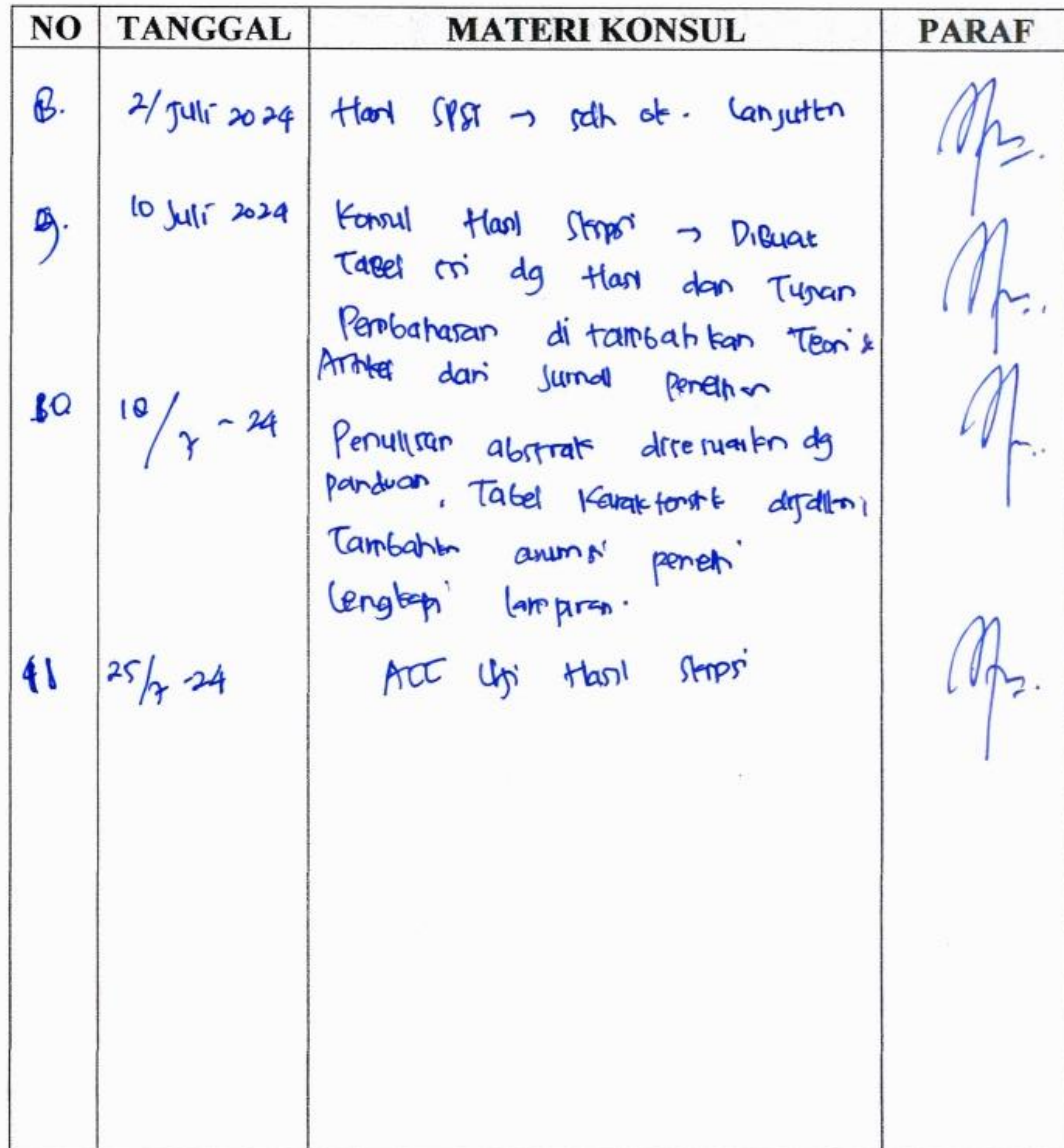 NO TANGGAL MATERI KONSUL PARAF
8. 2/Juli 2024 Hasil SPSS → sdh ok. Lanjutkan
9. 10 Juli 2024 Konsul Hasil Skripsi → Dibuat
Tabel dg Hasil dan Tujuan
Pembahasan di tambahkan Teori &
Artikel dari Jurnal penelitian
10 18/7 - 24 Penulisan abstrak disesuaikan dg
panduan, Tabel Karakteristik
Tambahkan asumsi peneliti
Lengkapi lampiran.
11 25/7-24 ACC Uji Hasil Skripsi